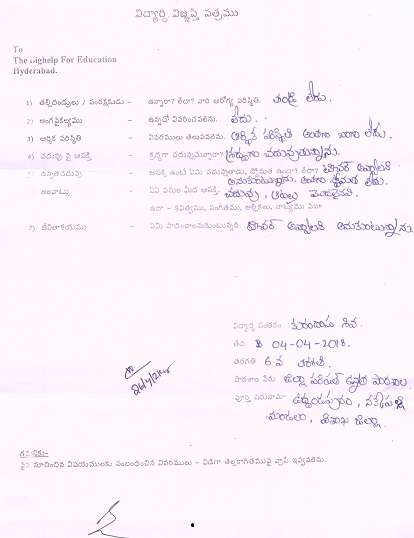 విద్యార్థి విజ్ఞప్తి పత్రము
To
The Highelp For Education
Hyderabad.
1) తల్లిదండ్రులు / సంరక్షకుడు - ఉన్నారా? లేదా? వారి ఆరోగ్య పరిస్థితి. తండ్రి లేడు.
2) అంగవైకల్యము - ఉన్నచో వివరించవలెను. లేదు.
3) ఆర్థిక పరిస్థితి - వివరములు తెలుపవలెను. ఆర్థిక పరిస్థితి అంతగా బాగా లేదు.
4) చదువు పై ఆసక్తి - శ్రద్ధగా చదువుచున్నారా? శ్రద్ధగా చదువుతున్నాను.
ఉన్నతచదువు - ఆసక్తి ఉంటే ఏమి చదువుతాడు. స్తోమత ఉందా? లేదా? టీచర్ అవ్వాలని
అనుకుంటున్నాను. అంతగా స్తోమత లేదు.
అలవాట్లు - ఏఏ పనుల మీద ఆసక్తి. చదువు, ఆటలు మొదలైనవి.
ఉదా - కవిత్వము, సంగీతము, అల్లికలు, నాట్యము
7) జీవితాశయము - ఏమి సాధించాలనుకుంటున్నది. టీచర్ అవ్వాలని అనుకుంటున్నాను.
విద్యార్థి సంతకం శివ
తేది. 04-04-2018.
తరగతి 6 వ తరగతి
పాఠశాల పేరు జిల్లా పరిషత్ ఉన్నత పాఠశాల
పూర్తి చిరునామా
మండలం, విశాఖ జిల్లా.
గమనిక:-
పైన సూచించిన విషయములకు సంబంధించిన వివరములు - విడిగా తెల్లకాగితముపై వ్రాసి ఇవ్వవలెను.